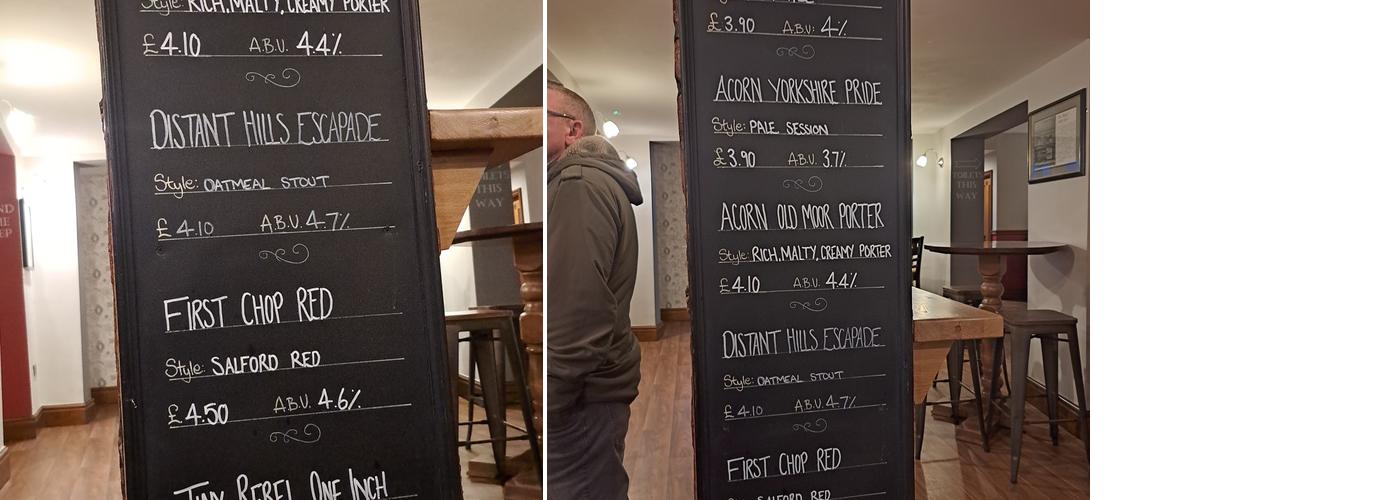 Style: RICH, MALTY, CREAMY PORTER
£4.10 A.B.V. 4.4%
DISTANT HILLS ESCAPADE
Style: OATMEAL STOUT
£4.10 A.B.V. 4.7%
FIRST CHOP RED
Style: SALFORD RED
£4.50 A.B.V. 4.6%
TINY REBEL ONE INCH
TOILETS
THIS
WAY
£3.90 A.B.V: 4%
ACORN YORKSHIRE PRIDE
Style: PALE SESSION
£3.90 A.B.V. 3.7%
ACORN OLD MOOR PORTER
Style: RICH, MALTY, CREAMY PORTER
£4.10 A.B.V. 4.4%
DISTANT HILLS ESCAPADE
Style: OATMEAL STOUT
£4.10 A.B.V. 4.7%
FIRST CHOP RED
Style: SALFORD RED
TOILETS
THIS
WAY